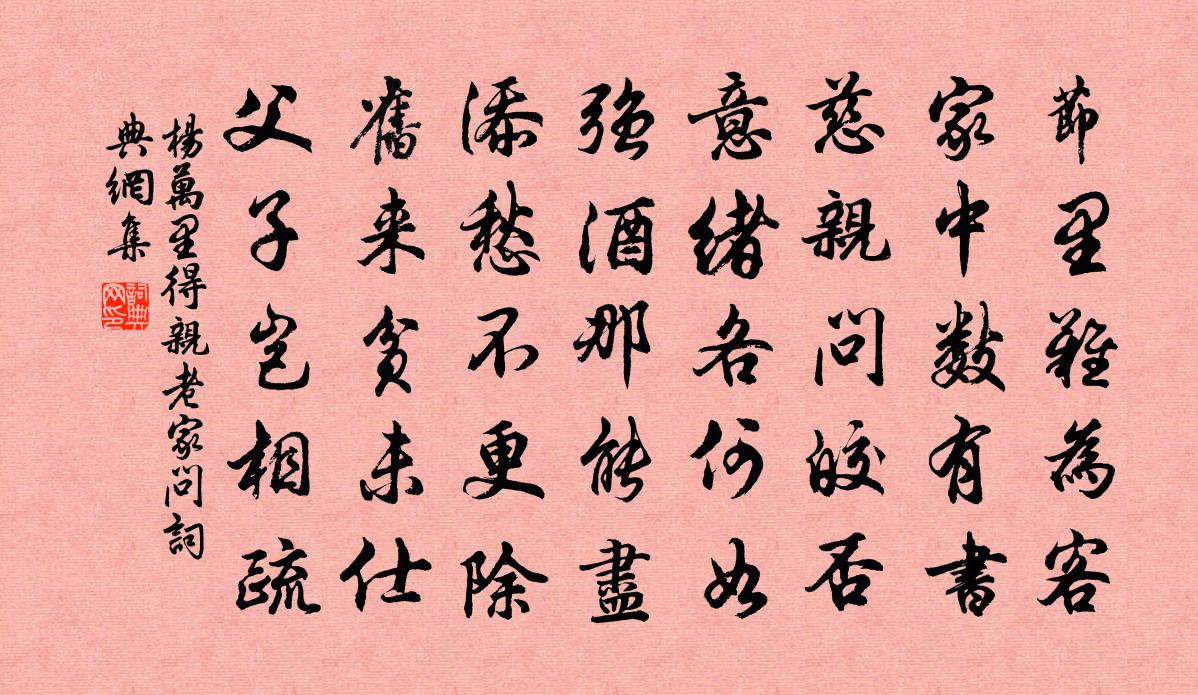 節里難為客
家中數有書
慈親問皎否
意緒各何如
強酒那能盡
添愁不更除
舊來貧未仕
父子豈相疏
楊萬里得親老家問詞
典網集
詞典網印